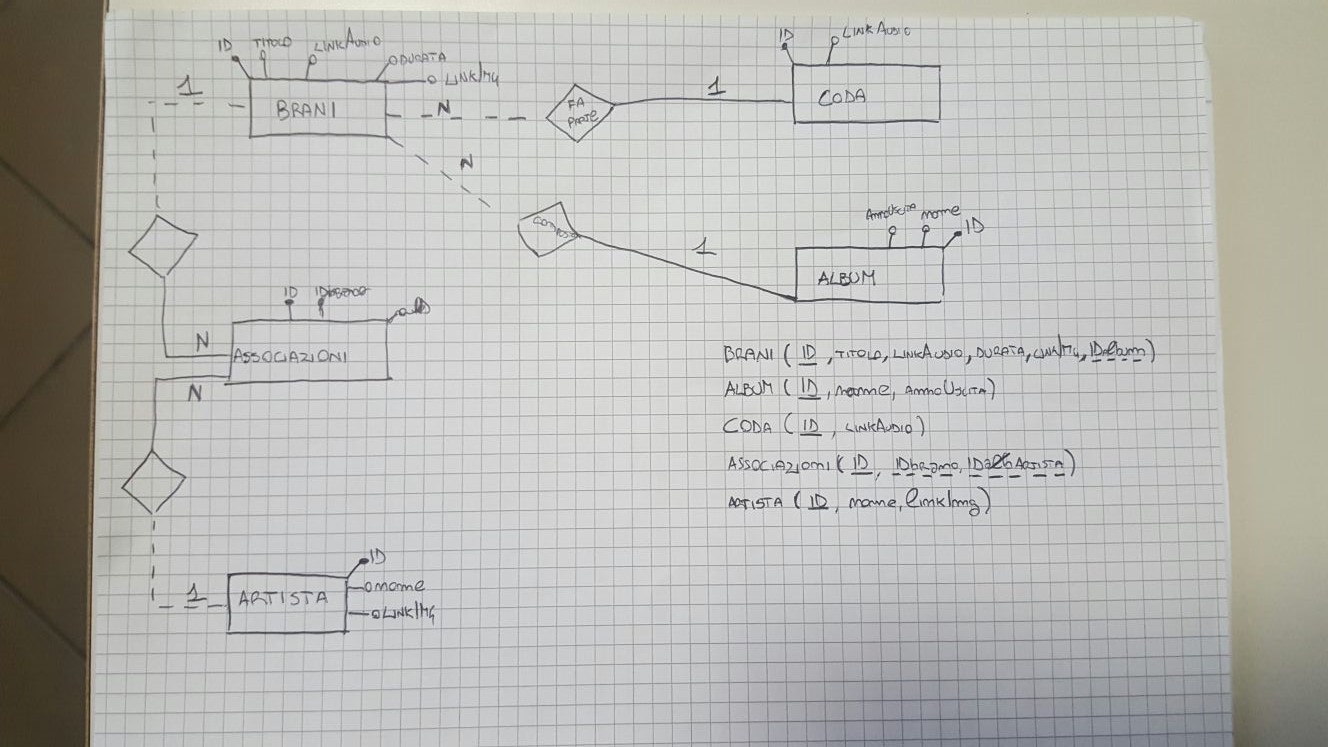 ID TITOLO LINKAUDIO
DURATA
LINKIMG
1
BRANI
N
FA
PARTE
1
ID LINKAUDIO
CODA
N
1
AnnoUscita nome
ID
ALBUM
ID IDbrano
N
ASSOCIAZIONI
N
BRANI ( ID , TITOLO, LINKAUDIO, DURATA, LINKIMG, IDalbum )
ALBUM ( ID , nome, AnnoUscita )
CODA ( ID , LINKAUDIO )
ASSOCIAZIONI ( ID , IDbrano, IDArtista )
ARTISTA ( ID , nome, linkImg )
ID
nome
1
ARTISTA
LINKIMG